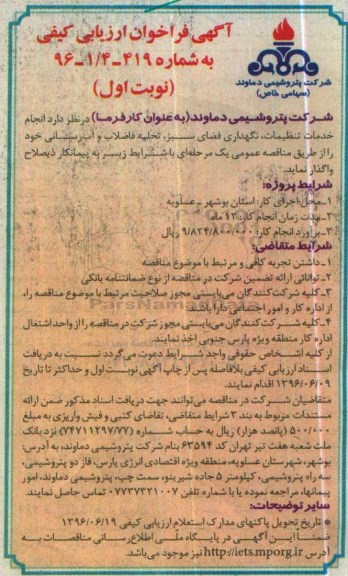 آگهی فراخوان ارزیابی کیفی
به شماره ۴۱۹-۱/۴-۹۶
(نوبت اول)
شرکت پتروشیمی دماوند
(سهامی خاص)
شرکت پتروشیمی دماوند(به عنوان کارفرما) در نظر دارد انجام
خدمات تنظیفات، نگهداری فضای سبز، تخلیه فاضلاب و آبرسانی خود
را از طریق مناقصه عمومی یک مرحله‌ای با شرایط زیر به پیمانکار ذیصلاح
واگذار نماید.
شرایط پروژه:
۱-محل اجرای کار: استان بوشهر - عسلویه
۲-مدت زمان انجام کار: ۱۲ ماه
۳-برآورد انجام کار: ۹/۸۲۴/۸۰۰/۰۰۰ ریال
شرایط متقاضی:
۱-داشتن تجربه کافی و مرتبط با موضوع مناقصه
۲-توانائی ارائه تضمین شرکت در مناقصه از نوع ضمانتنامه بانکی
۳-کلیه شرکت‌کنندگان می‌بایستی مجوز صلاحیت مرتبط با موضوع مناقصه را،
از اداره کار و امور اجتماعی دارا باشند.
۴-کلیه شرکت‌کنندگان می‌بایستی مجوز شرکت در مناقصه را از واحد اشتغال
اداره کار منطقه ویژه پارس جنوبی اخذ نمایند.
از کلیه اشخاص حقوقی واجد شرایط دعوت می‌گردد نسبت به دریافت
اسناد ارزیابی کیفی بلافاصله پس از چاپ آگهی نوبت اول و حداکثر تا تاریخ
۱۳۹۶/۰۶/۰۹ اقدام نمایند.
متقاضیان شرکت در مناقصه می‌توانند جهت دریافت اسناد مذکور ضمن ارائه
مستندات مربوط به بند ۳ شرایط متقاضی، تقاضای کتبی و فیش واریزی به مبلغ
۵۰۰/۰۰۰ (پانصد هزار) ریال به حساب شماره (۷۴۷۱۱۲۹۷/۷۷) نزد بانک
ملت شعبه هفت تیر تهران کد ۶۳۵۹۴ بنام شرکت پتروشیمی دماوند، به آدرس:
بوشهر، شهرستان عسلویه، منطقه ویژه اقتصادی انرژی پارس، فاز دو پتروشیمی،
سه راه پتروشیمی، کیلومتر ۵ جاده شیرینو، سمت چپ، پتروشیمی دماوند، امور
پیمانها، مراجعه نموده یا با شماره تلفن ۰۷۷۳۷۳۲۱۰۰۷ تماس حاصل نمایند.
سایر توضیحات:
* تاریخ تحویل پاکتهای مدارک استعلام ارزیابی کیفی ۱۳۹۶/۰۶/۱۹
ضمناً این آگهی در پایگاه ملی اطلاع‌رسانی مناقصات به
آدرس http://iets.mporg.ir نیز موجود می‌باشد.